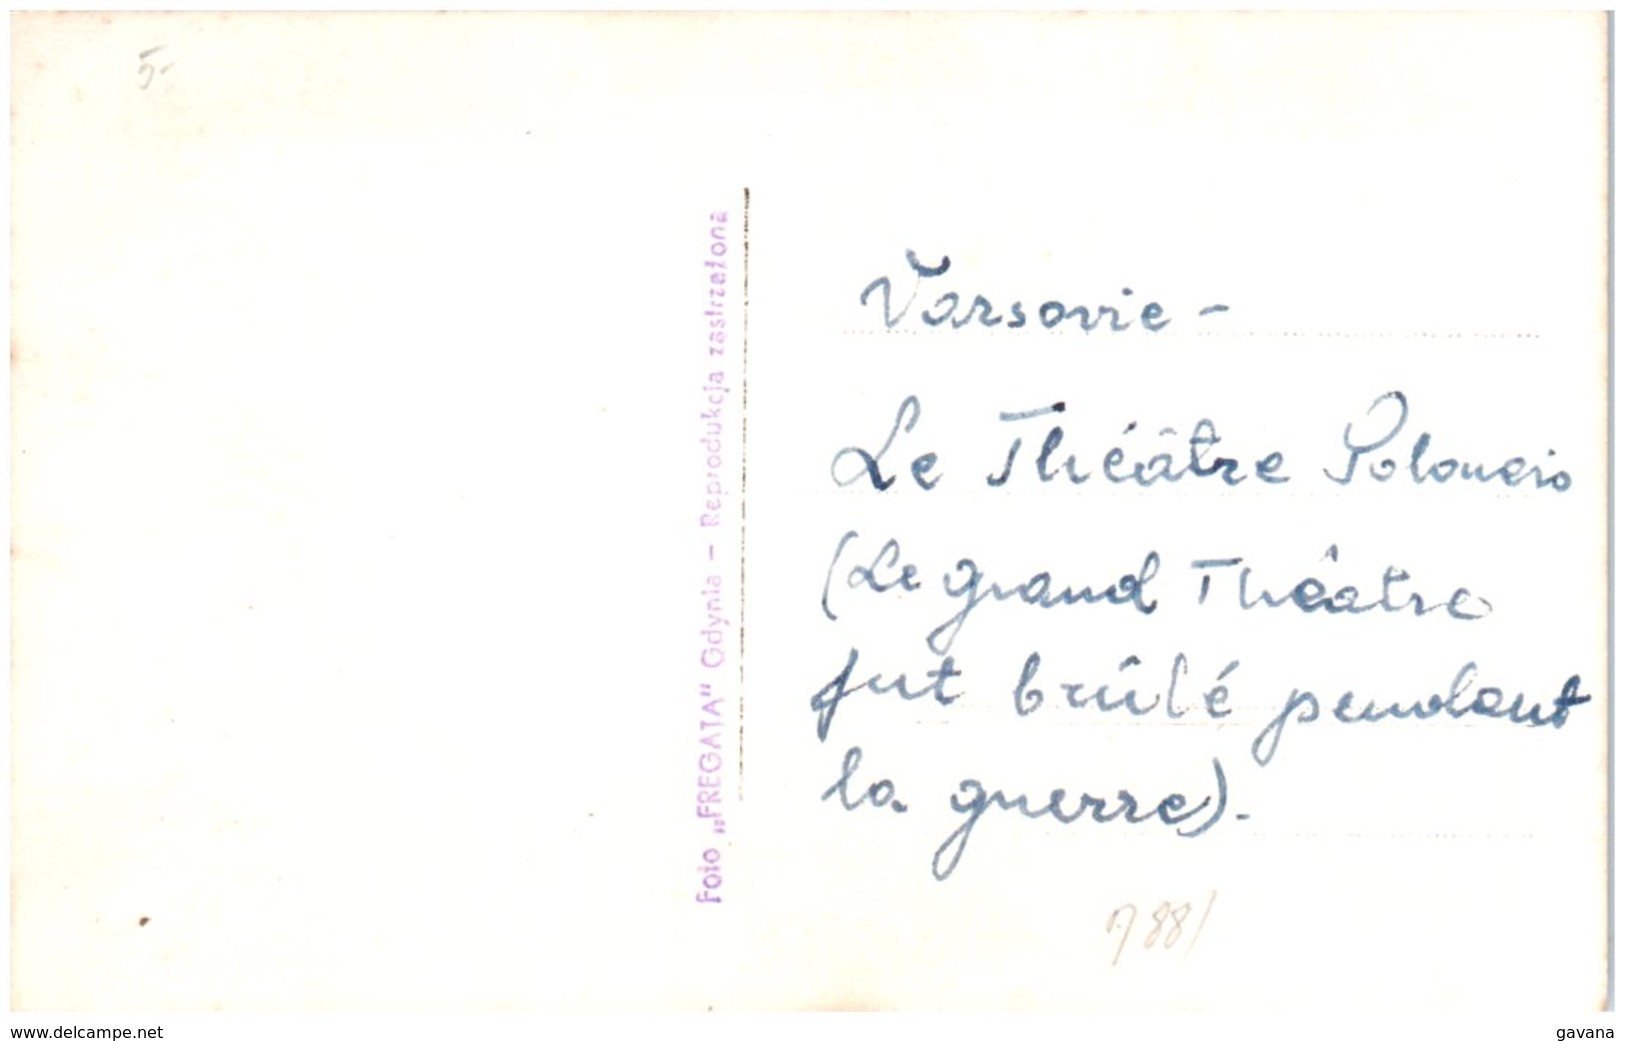 5-
Foto „FREGATA" Gdynia - Reprodukcja zastrzeżona
Varsovie -
Le Théâtre Polonais
(Le grand Théâtre
fut brûlé pendant
la guerre).-
www.delcampe.net
gavana